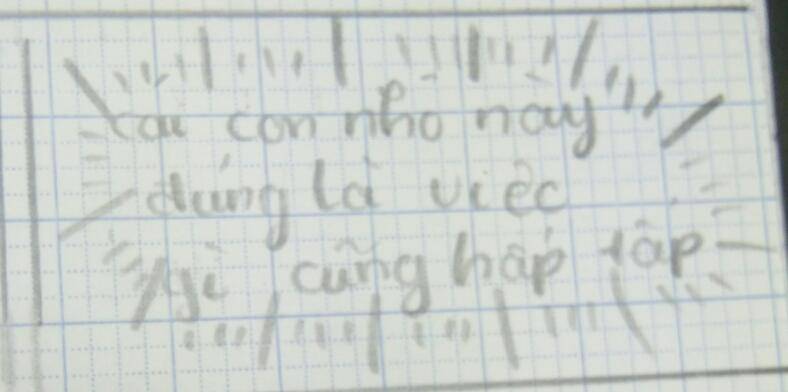 cái con nhỏ này
đúng là việc
gì cũng hấp tấp